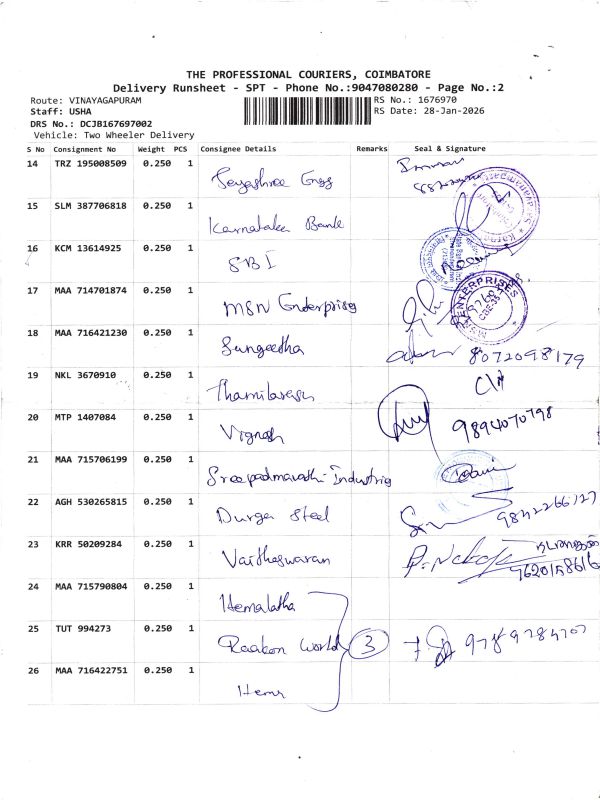 THE PROFESSIONAL COURIERS, COIMBATORE
Delivery Runsheet - SPT - Phone No.:9047080280 - Page No.:2
Route: VINAYAGAPURAM RS No.: 1676970
Staff: USHA RS Date: 28-Jan-2026
DRS No.: DCJB167697002
Vehicle: Two Wheeler Delivery
S No Consignment No Weight PCS Consignee Details Remarks Seal & Signature
14 TRZ 195008509 0.250 1 Jeyashree Engg
15 SLM 387706818 0.250 1 Karnataka Bank
16 KCM 13614925 0.250 1 SBI
17 MAA 714701874 0.250 1 MSN Enterprises MSN ENTERPRISES
18 MAA 716421230 0.250 1 Sangeetha 8072098179
19 NKL 3670910 0.250 1 Thamilarasu
20 MTP 1407084 0.250 1 Vignesh 9894070798
21 MAA 715706199 0.250 1 Sreepadmavathi Industries
22 AGH 530265815 0.250 1 Durga Steel 9842266127
23 KRR 50209284 0.250 1 Vaitheswaran 9620158616
24 MAA 715790804 0.250 1 Hemalatha
25 TUT 994273 0.250 1 Raakon World 3
26 MAA 716422751 0.250 1 Hema